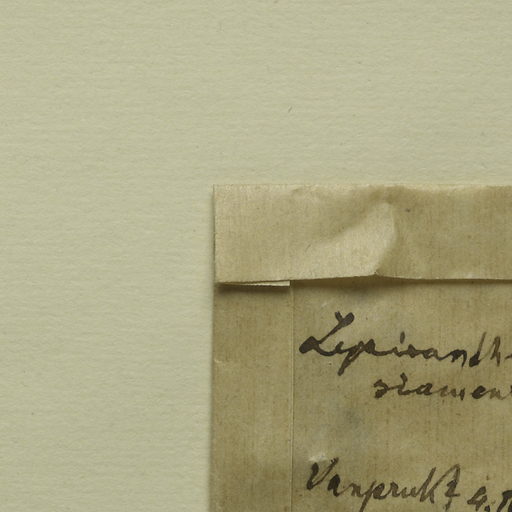 Lepisanth
siamen
Vanpruk